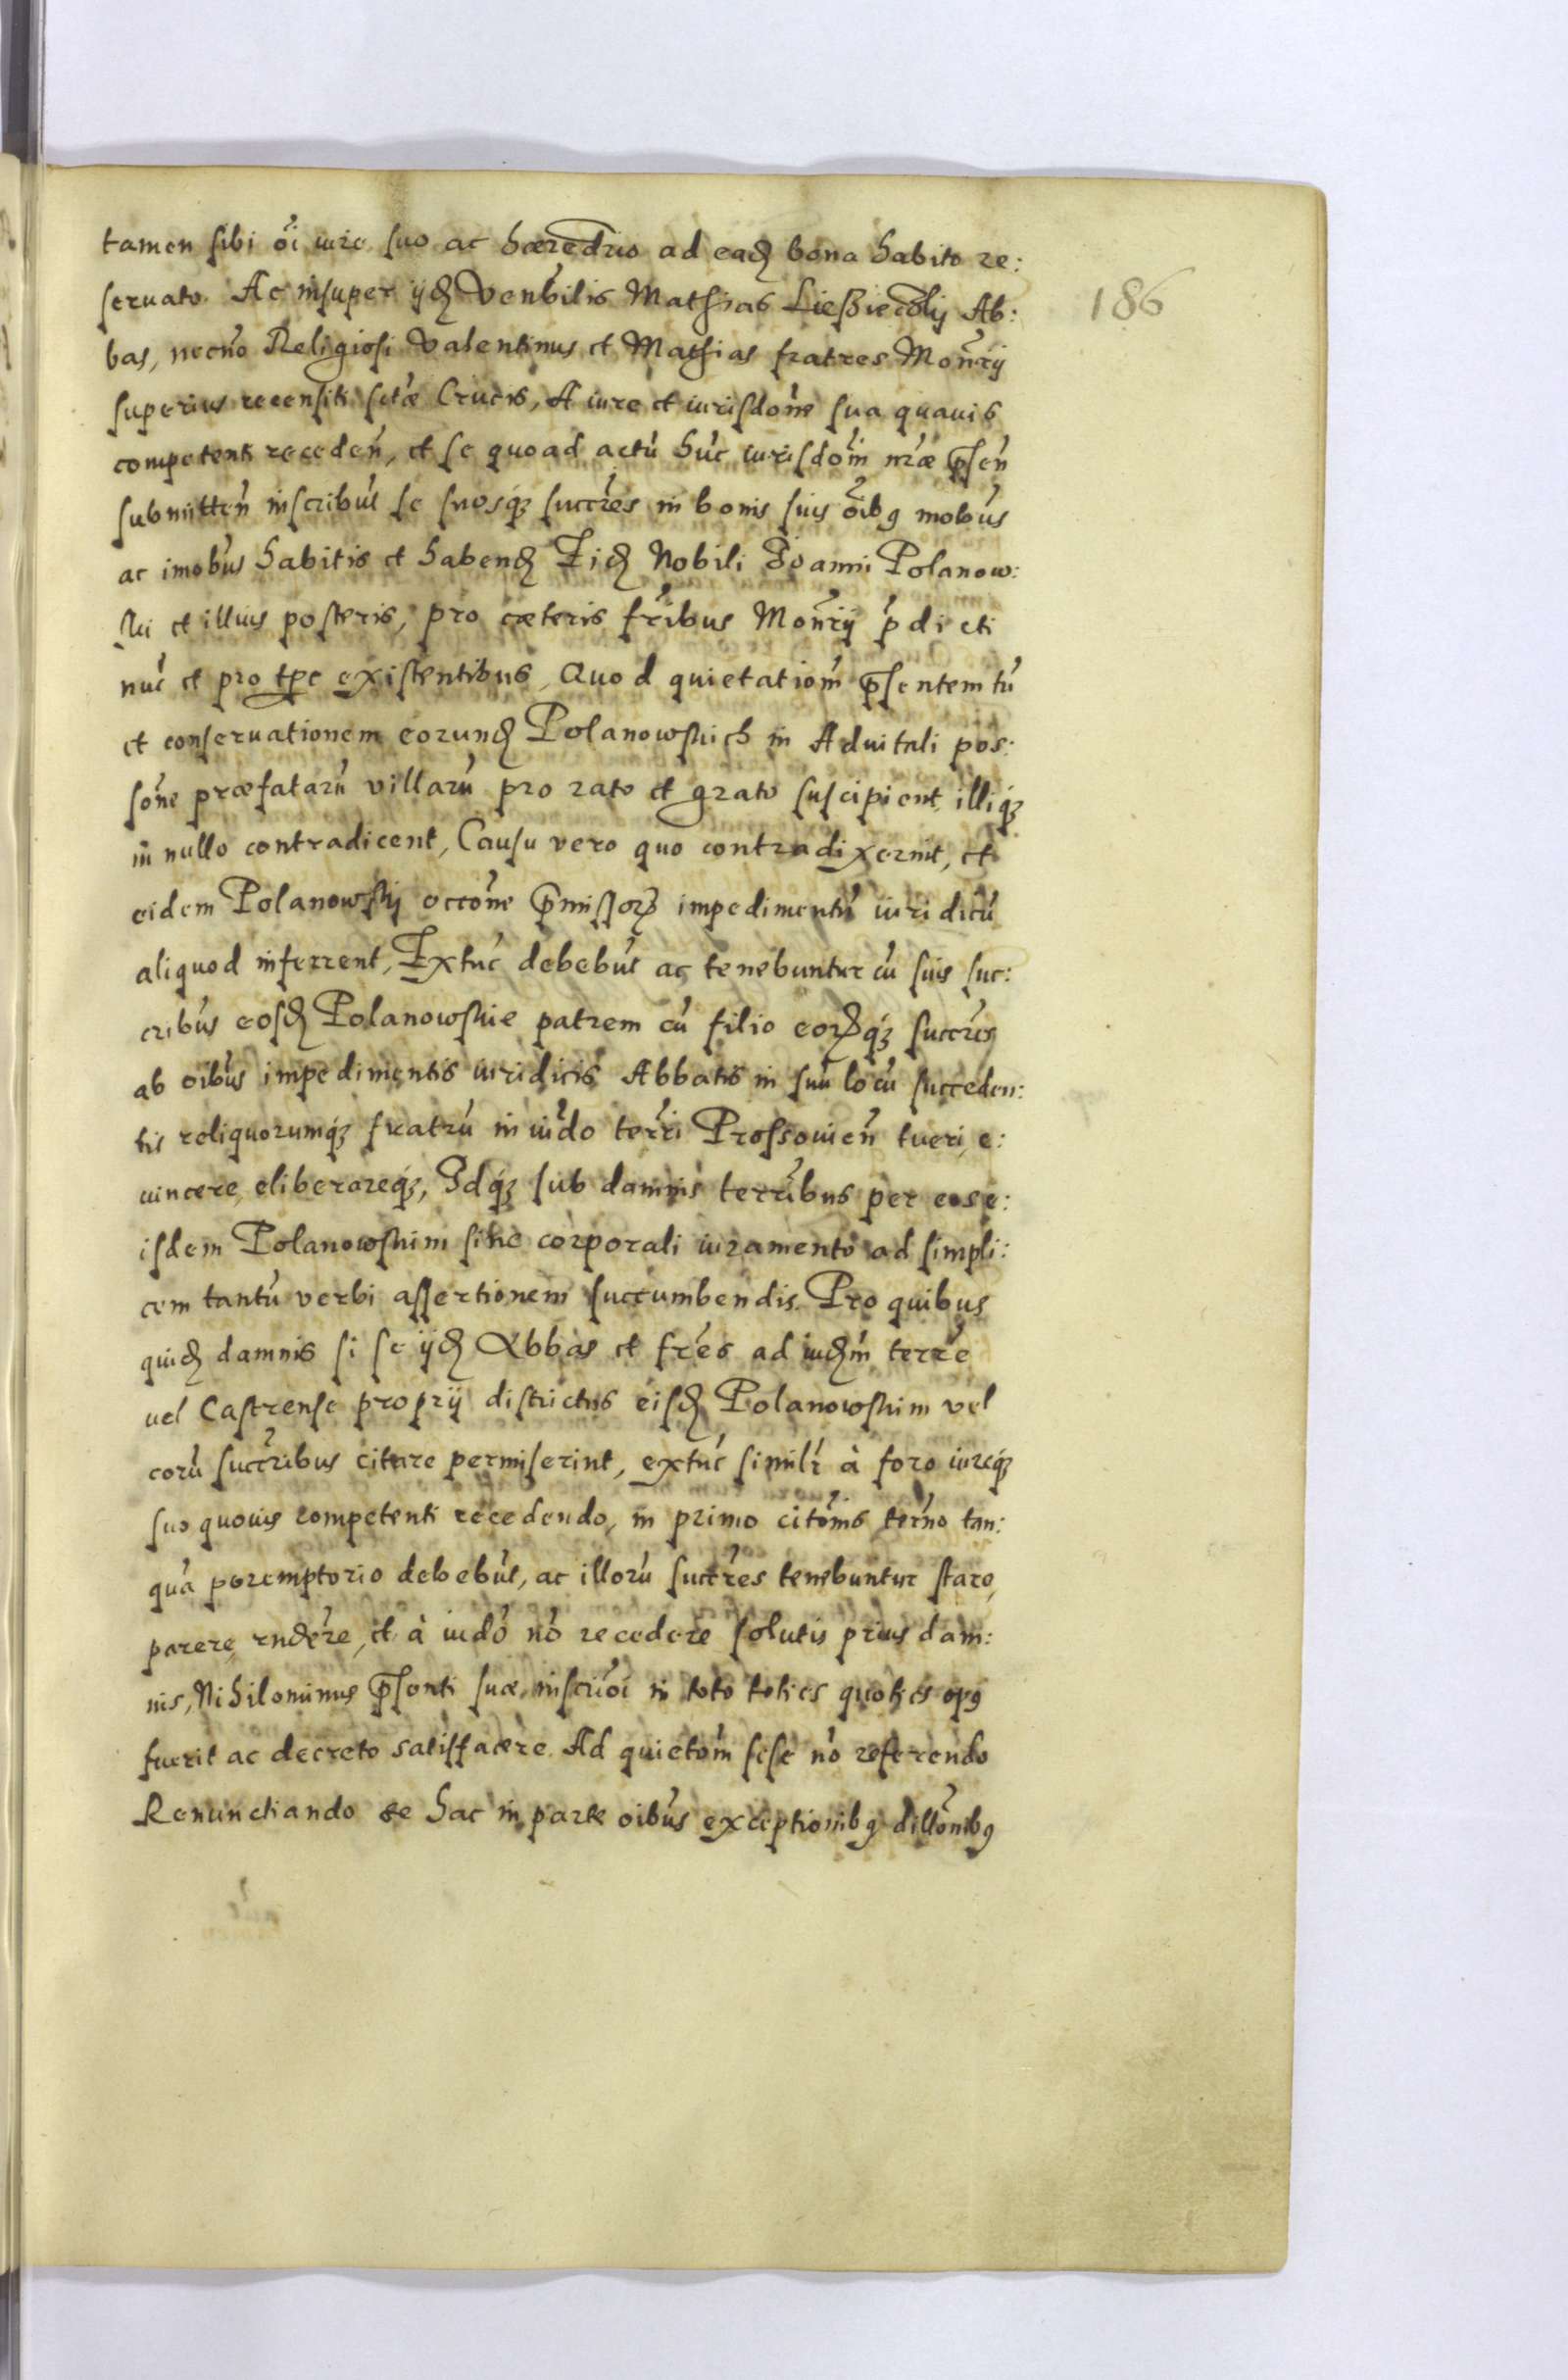 tamen sibi oi̅ iure suo ac hæred̅rio ad eadꝫ bona habito re:
seruato. Ac insuper ijdꝫ Venb̅ilis Mathias Ab:
bas, necno̅ Religiosi Valentinus et Mathias fratres Mon̅rij
superius recensiti sctæ Crucis, A iure et iurisdo̅ne sua quauis
competenti receden̅, et se quoad actu̅ hu̅c iurisdo̅ni nr̅æ p̅sen̅
submitten̅ inscribu̅t se suosq́ꝫ succr̅es in bonis suis o̅ibꝰ mob̅us
ac imob̅us habitis et habendꝫ Eidꝫ Nobili Joanni Polanow:
ski et illius posteris, pro cæteris fr̅ibus Mon̅rij p̅dicti
nu̅c et pro tp̅e existentibus, Quod quietatio̅m p̅sentem tu̅
et conseruationem eorundꝫ Polanowskich in Aduitali pos:
so̅ne præfataru̅ villaru̅ pro rato et grato suscipient, illiq́ꝫ
in nullo contradicent, Causu vero quo contradixerint, et
eidem Polanowskij occo̅ne p̅missorꝝ impedimentu̅ iuridicu̅
aliquod inferrent, Extu̅c debebu̅t ac tenebuntur cu̅ suis suc:
crib̅us eosdꝫ Polanowskie patrem cu̅ filio eorꝝq́ꝫ succr̅es
ab oib̅us impedimentis iuridicis Abbatis in suu̅ locu̅ succeden:
tis reliquorumq́ꝫ fratru̅ in iu̅do terr̅i Prossouien̅ tueri, e:
uincere, eliberareq́ꝫ, Idq́ꝫ sub damnis terr̅ibus per eos e:
isdem Polanowskim sine corporali iuramento ad simpli:
cem tantu̅ verbi assertionem succumbendis. Pro quibus
quidꝫ damnis si se ijdꝫ Abbas et fr̅es ad iudꝫm̅ terr̅e
vel Castrense proprij districtus eisdꝫ Polanowskim vel
eoru̅ succr̅ibus citare permiserint, extu̅c similr̅ à foro iureq́ꝫ
suo quouis competenti recedendo, in primo cito̅nis ter̅no tan:
qua̅ peremptorio debebu̅t, ac illoru̅ succr̅es tenebuntur stare,
parere, rn̅dere, et à iudo̅ no̅ recedere solutis prius dam:
nis, Nihilominus p̅senti suæ inscrio̅i in toto toties quoties opꝰ
fuerit ac decreto satisfacere. Ad quieto̅m sese no̅ referendo
Renunctiando se hac in parte oib̅us exceptionibꝰ dillo̅nibꝰ
186